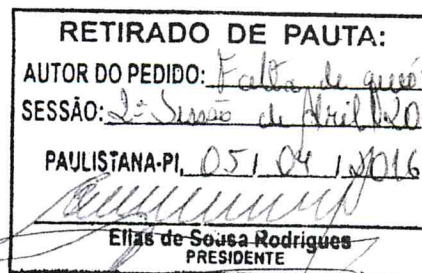 RETIRADO DE PAUTA:
AUTOR DO PEDIDO: Falta de
SESSÃO: 2ª Sessão de Abril
PAULISTANA-PI, 05 / 04 / 2016
Elias de Sousa Rodrigues
PRESIDENTE